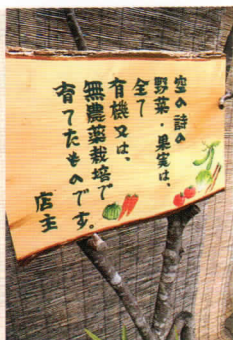 空の詩の
野菜・果実は、
全て
有機又は、
無農薬栽培で
育てたものです。
店主